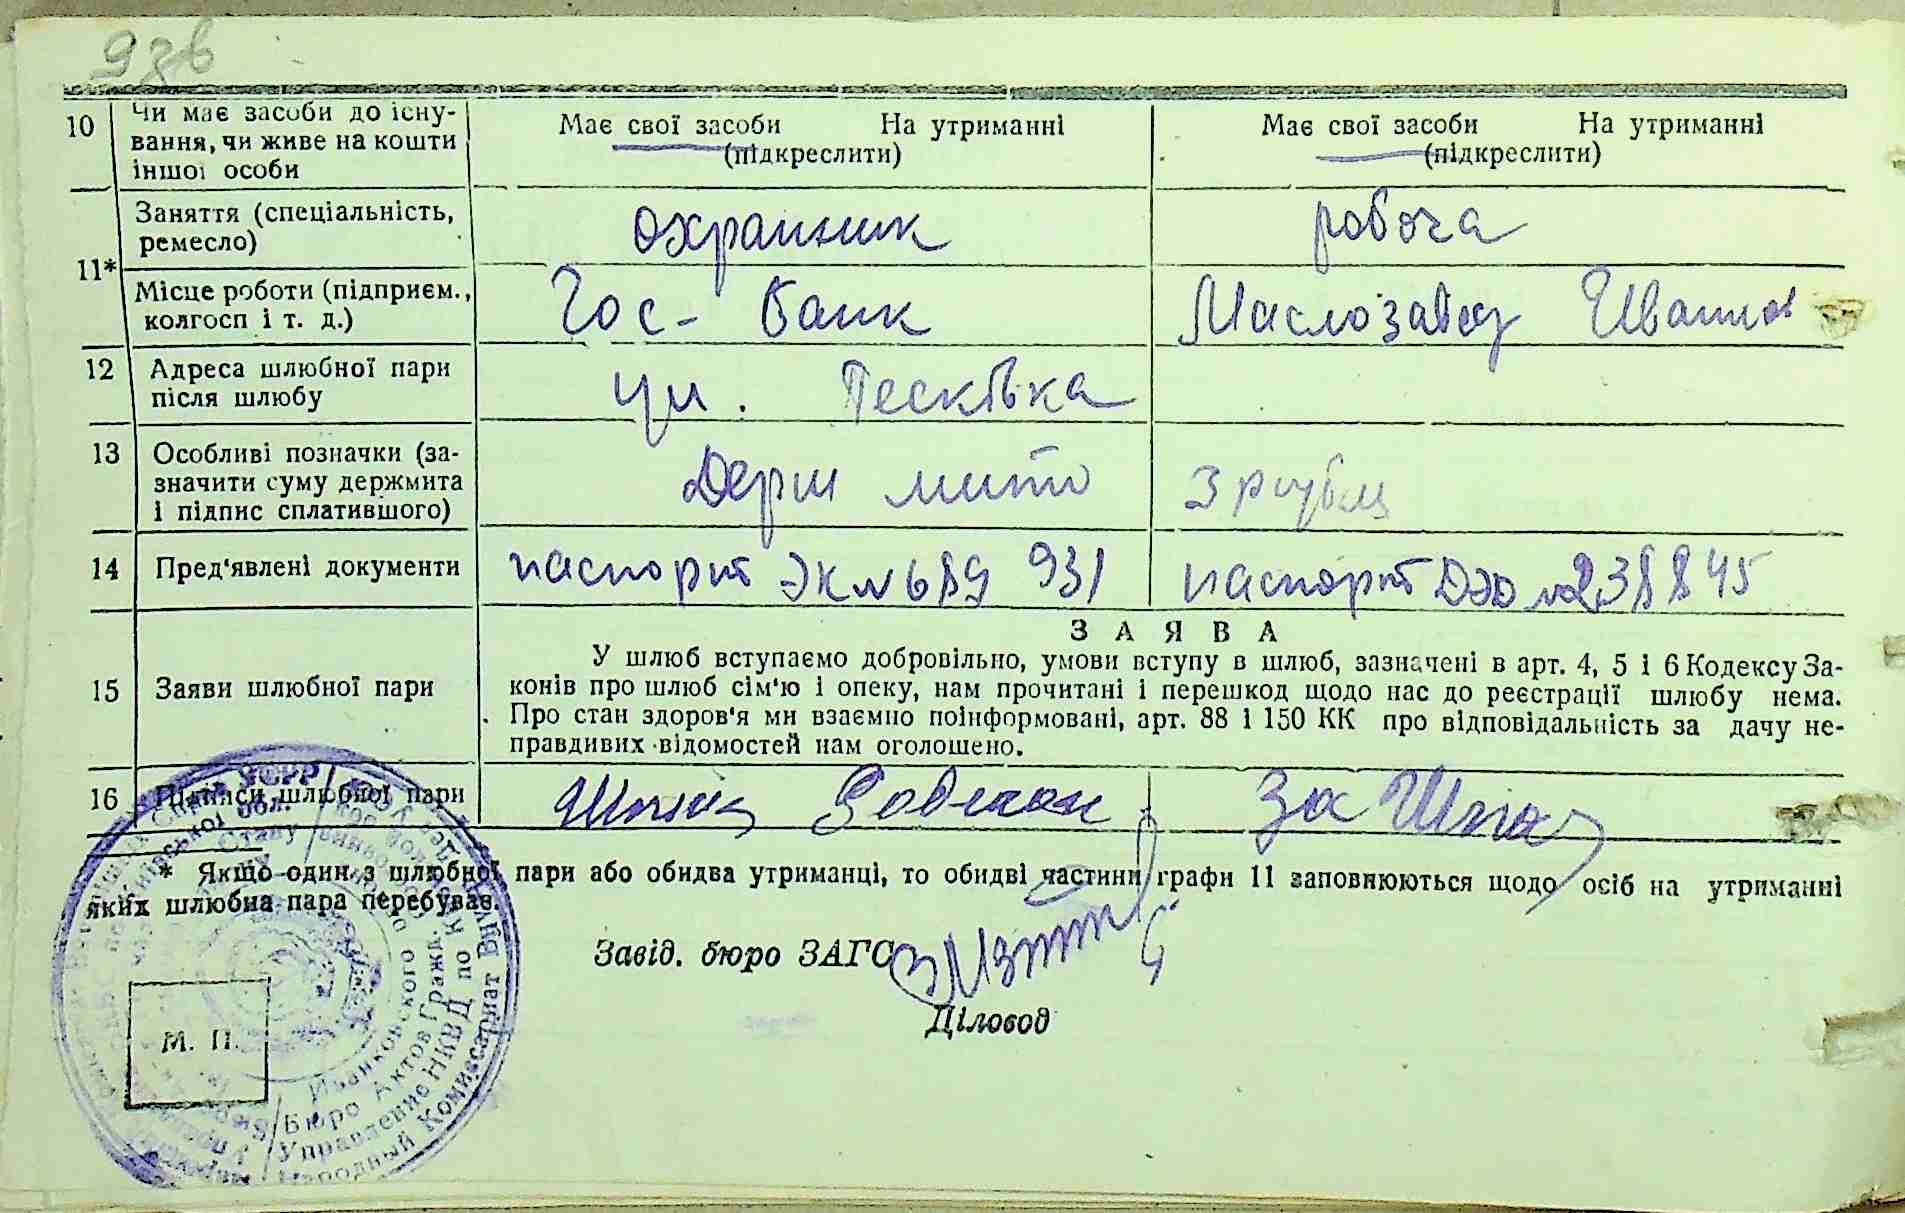 93в
10 Чи має засоби до існу-
вання, чи живе на кошти
іншої особи
Має свої засоби На утриманні
(підкреслити)
Має свої засоби На утриманні
(підкреслити)
11*
Заняття (спеціальність,
ремесло)
охранник
робоча
Місце роботи (підприєм.,
колгосп і т. д.)
Гос- банк
Маслозавод Иванков
12 Адреса шлюбної пари
після шлюбу
ул. Песківка
13 Особливі позначки (за-
значити суму держмита
і підпис сплатившого)
Держ мито
3 рубли
14 Пред'явлені документи
паспорт ЭК № 689 931
паспорт ДЭО № 238845
З А Я В А
15 Заяви шлюбної пари
У шлюб вступаємо добровільно, умови вступу в шлюб, зазначені в арт. 4, 5 і 6 Кодексу За-
конів про шлюб сім'ю і опеку, нам прочитані і перешкод щодо нас до реєстрації шлюбу нема.
Про стан здоров'я ми взаємно поінформовані, арт. 88 і 150 КК про відповідальність за дачу не-
правдивих відомостей нам оголошено.
16 Підписи шлюбної пари
За
* Якщо один з шлюбної пари або обидва утриманці, то обидві частини графи 11 заповнюються щодо осіб на утриманні
яких шлюбна пара перебуває.
Завід. бюро ЗАГС
Діловод
М. П.
Иванковского
Бюро Актов Гражд.
Управление НКВД по
Народный Комиссариат